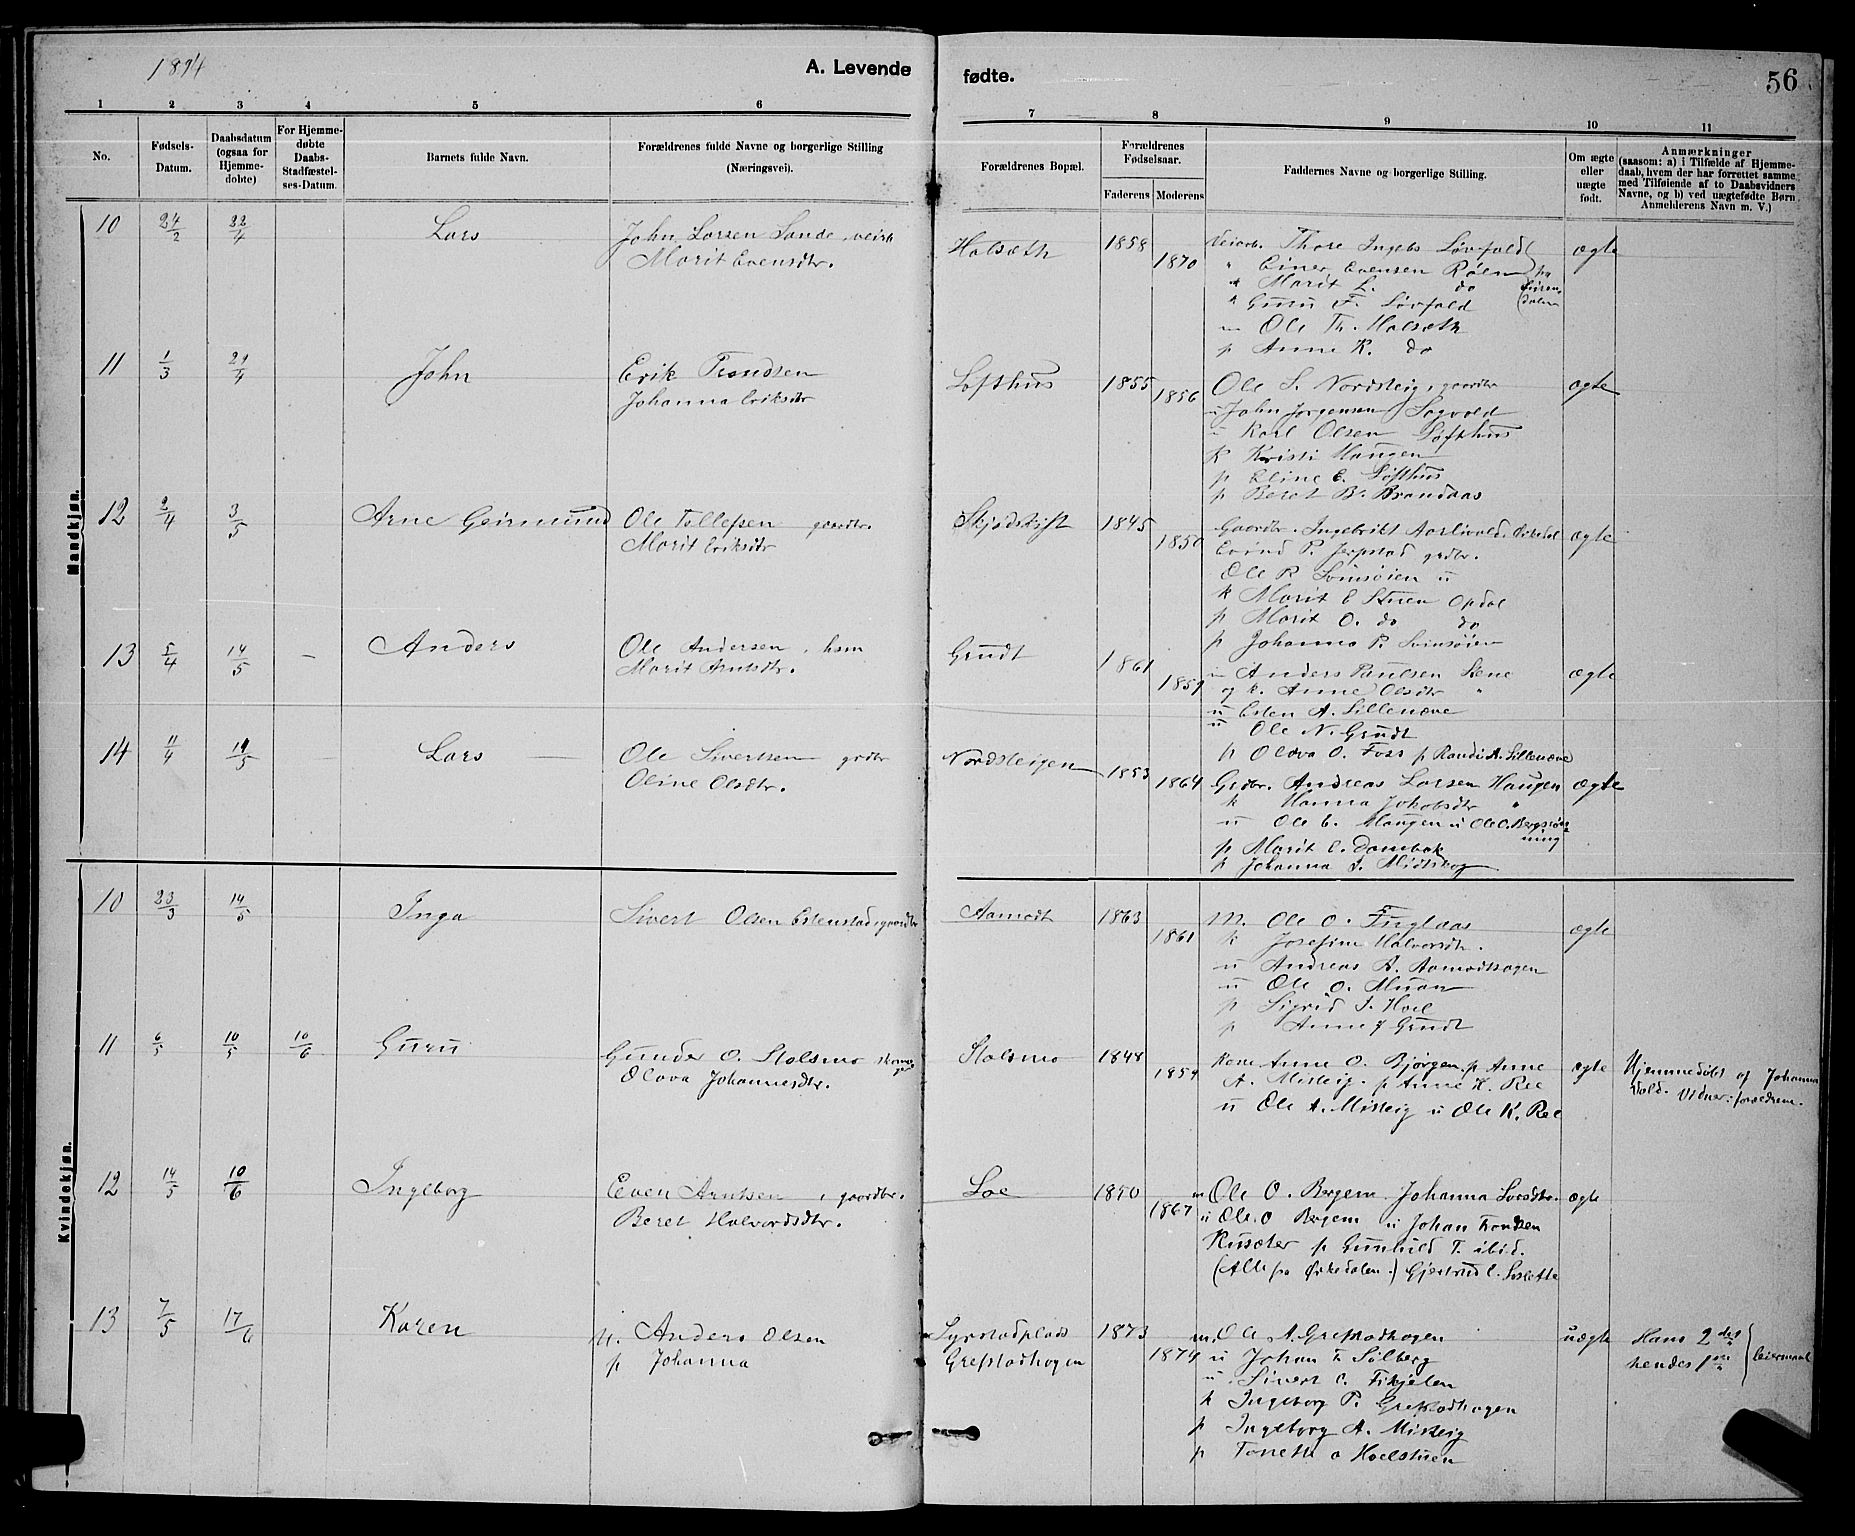 1894
A. Levende fødte.
56
1 2 3 4 5 6 7 8 9 10 11
No.
Fødsels-Datum.
Daabsdatum (ogsaa for Hjemmedobte)
For Hjemmedøbte Daabs-Stadfæstelses-Datum.
Barnets fulde Navn.
Forældrenes fulde Navne og borgerlige Stilling (Næringsvei).
Forældrenes Bopæl.
Forældrenes Fødselsaar.
Faderens Moderens
Faddernes Navne og borgerlige Stilling.
Om ægte eller uægte født.
Anmærkninger (saasom: a) i Tilfælde af Hjemmedaab, hvem der har forrettet samme med Tilføiende af to Daabsvidners Navne, og b) ved uægtefødte Børn Anmelderens Navn m. V.)
Mandkjøn.
10 24/2 22/4 Lars
John Larsen Sande, veiarb
Marit Evensdtr.
Halsæth 1858 1870
Veiarb. Thore Ingebs Løvfald
" Einer Evensen Røen
" Marit L. do
" Guru F. Løvfald
Ole Th. Halsæth
p Anne K. do
ægte
11 1/3 29/4 John
Erik Trondsen
Johanna Eriksdtr
Lofthus 1855 1856
Ole S. Nordsteig, gaardbr
u John Jørgensen Sagvold
u Karl Olsen Løfthus
k Kristi Haugen
p Eline E. Løfthus
p Beret B. Brandaas
ægte
12 2/4 3/5 Arne Geirmund
Ole Tollefsen gaardbr.
Marit Eriksdtr
Skjødskift 1845 1850
Gaardbr. Ingebrikt Aarlivold, Orkedal
Evind P. Jerpstad grdbr.
Ole P. Svinsøien u
k Marit E Stuen Opdal
p Marit O. do do
p Johanna P. Svinsøien
ægte
13 5/4 14/5 – Anders
Ole Andersen, hsm
Marit Arntsdtr.
Grudt 1861 1859
Anders Paulsen Stene
og k. Anne Olsdtr "
u Esten A. Sillenæve
u Ole N. Grudt
p Olava O. Foss p Randi A. Sillenæve
ægte
14 11/4 14/5 – Lars –
Ole Sivertsen grdbr
Oline Olsdtr.
Nordsteigen 1853 1864
Grdbr. Andreas Larsen Haugen
k Hanna Jakobsdtr "
u Ole E. Haugen u Ole O. Bergsrønning
p Marit E. Dambak
p Johanna J. Midtskog
ægte
Kvindekjøn.
10 23/3 14/5 Inga
Sivert Olsen Estenstad, gaardbr
Aamodt 1863 1861
M. Ole O. Fuglaas
k Josefine Halvorsdtr.
u Andreas A. Aamodthagen
u Ole O. Muan
p Sigrid J. Hoel
p Anne J Grudt
ægte
11 6/5 10/5 10/6 Guru
Gunder O. Stolsmo
Olava Johannesdtr.
Stolsmo 1848 1854
Kone Anne O. Bjørgen. p Anne
A. Misteig. p Anne H. Ree
u Ole A. Misteig u Ole K. Ree
ægte
Hjemmedøbt af Johanna
Vold. Vidner: forældrene.
12 14/5 10/6 Ingeborg
Even Arntsen, gaardbr.
Beret Halvorsdtr.
Loe 1850 1867
m Ole O. Bergem Johanna Larsdtr.
u Ole O Bergem u Johan Trondsen
Russæter p Gunhild T. ibid.
(Alle fra Orkedalen.) Gjertrud E. Losletta
ægte
13 7/5 17/6 Karen
u. Anders Olsen
p Johanna
Syrstadplads
Grefstadhagen
1873 1874
m. Ole A. Grefstadhagen
u Johan T. Sølberg
u Sivert O. Fikjelen
k Ingeborg P. Grefstadhagen
p Ingeborg A. Misteig
p Tonette O Hoelstuen
uægte
Hans 2det
hendes 1ste
leiermaal